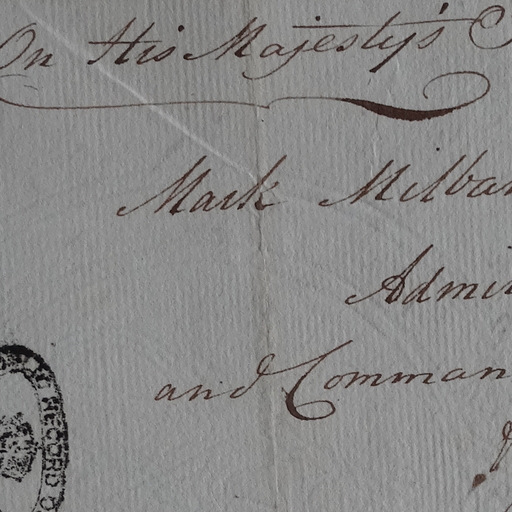 On His Majesty's S
Mark Milban
Admir
and Comman
RECORD O